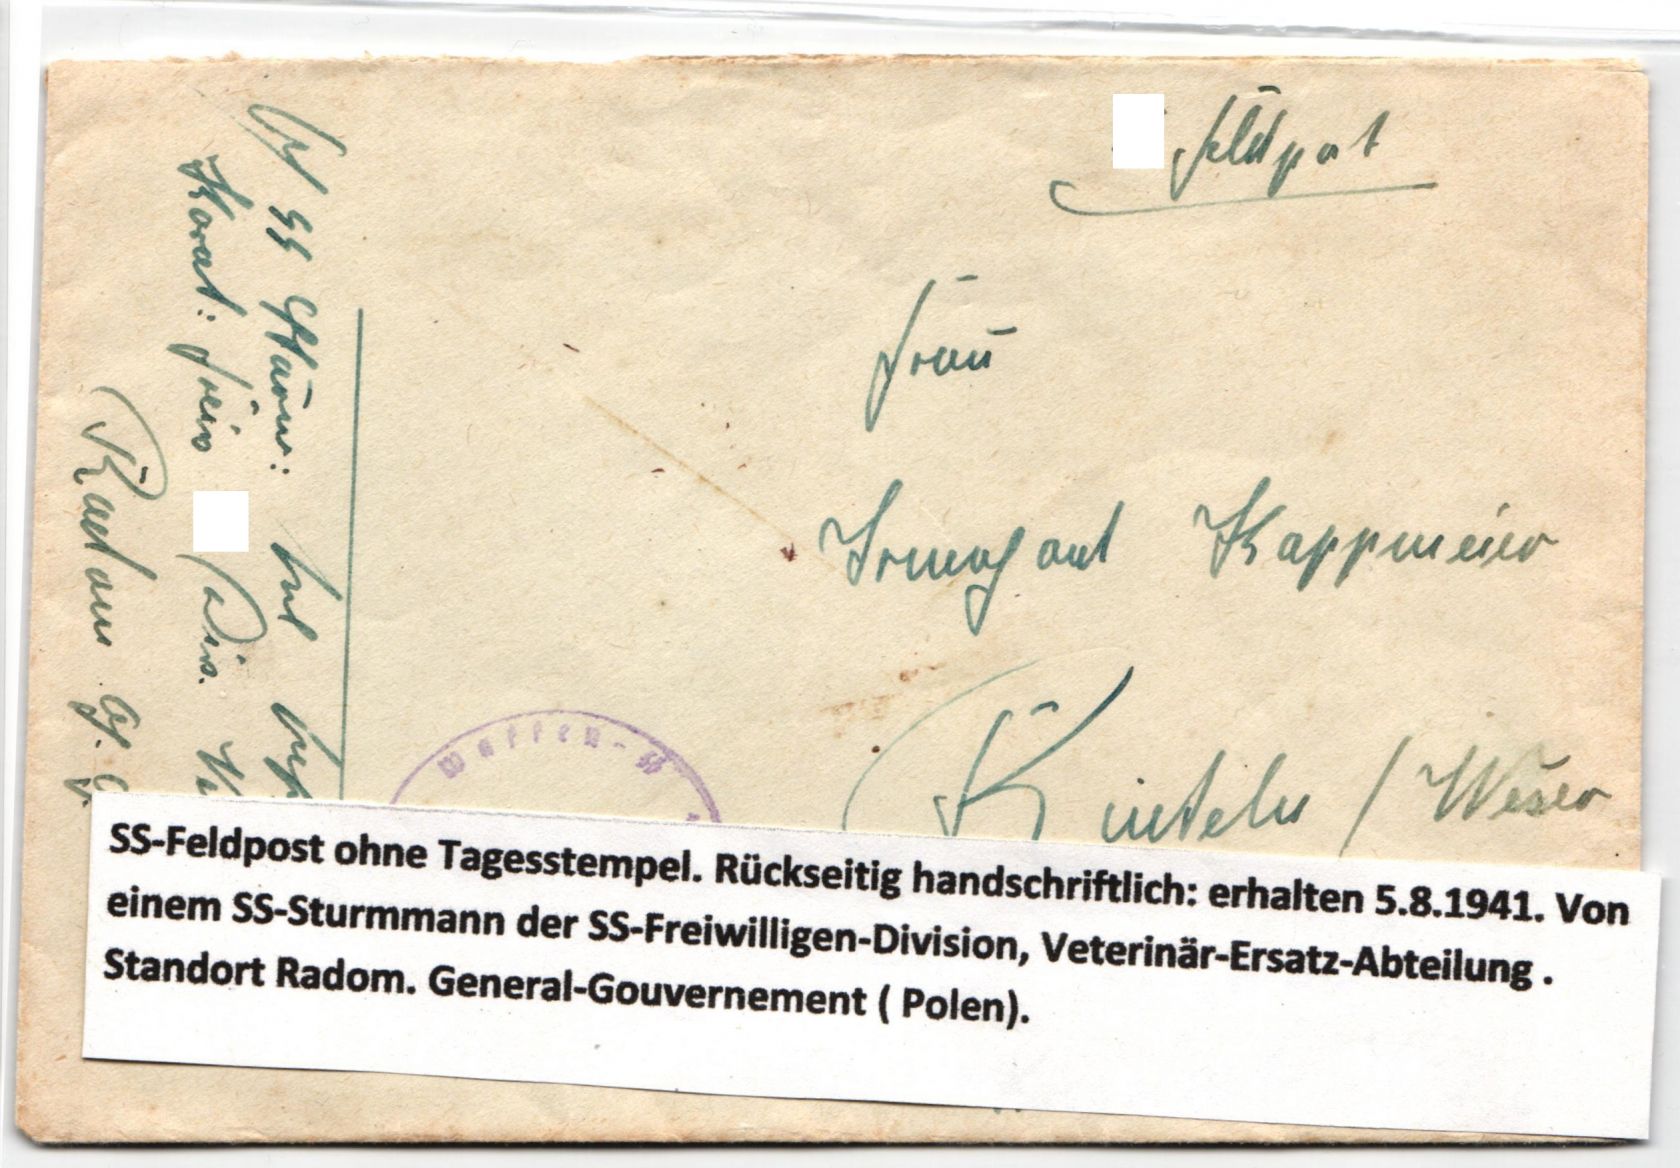 Feldpost
Frau
Irmgard Kappmeier
Rinteln / Weser
SS Sturm:
Freiw Div.
Radom G. G.
Waffen-SS
SS-Feldpost ohne Tagesstempel. Rückseitig handschriftlich: erhalten 5.8.1941. Von
einem SS-Sturmmann der SS-Freiwilligen-Division, Veterinär-Ersatz-Abteilung .
Standort Radom. General-Gouvernement ( Polen).